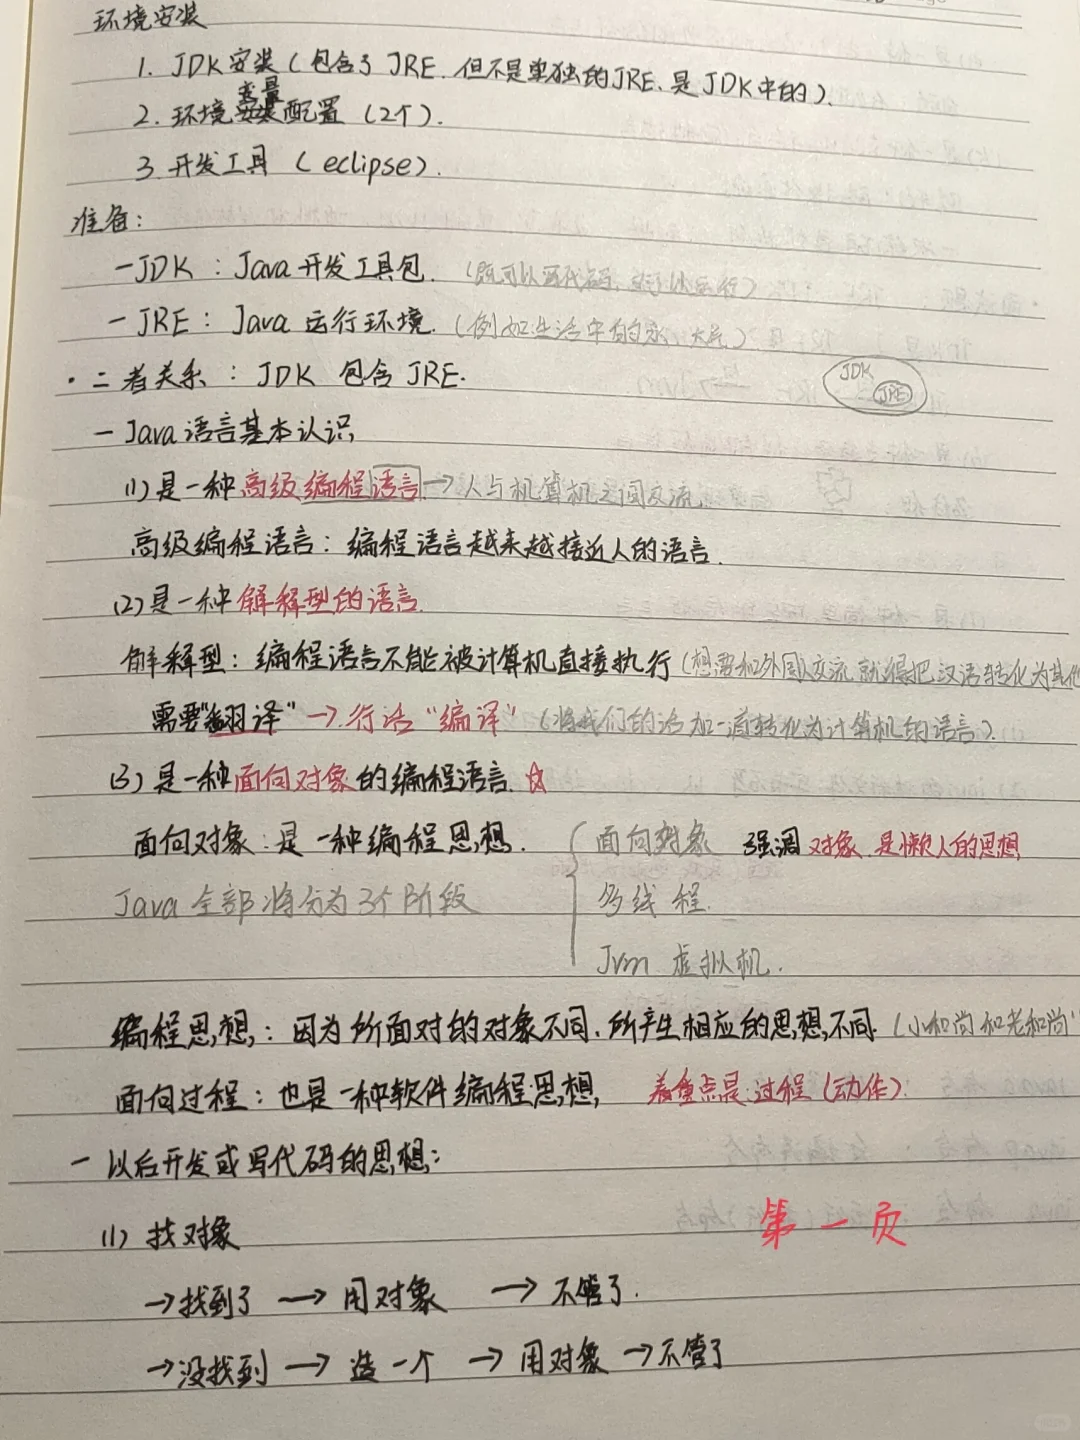 环境安装
1. JDK安装(包含了JRE.但不是单独的JRE、是JDK中的).
变量
2. 环境安装配置(2个).
3. 开发工具(eclipse).
准备:
一JDK:Java开发工具包.(既可以写代码,也可以运行)
一JRE:Java运行环境.(例如生活中的水,大气)
·二者关系:JDK 包含JRE.
JDK
JRE
一Java语言基本认识
(1)是一种高级编程语言→人与机算机之间交流
高级编程语言:编程语言越来越接近人的语言.
(2)是一种解释型的语言.
解释型:编程语言不能被计算机直接执行(想要和外国人交流就得把汉语转化为其他
需要"翻译"→行话"编译"(将我们的话加一道转化为计算机的语言).
(3)是一种面向对象的编程语言.☆
面向对象:是一种编程思想.
面向对象 强调对象.是懒人的思想
Java全部将分为3个阶段
多线程.
Jvm 虚拟机.
编程思想:因为所面对的对象不同.所产生相应的思想不同.(小和尚和老和尚
面向过程:也是一种软件编程思想, 着重点是:过程(动作).
一以后开发或写代码的思想:
(1)找对象
第一页
→找到了→用对象→不管了.
→没找到→造一个→用对象→不管了